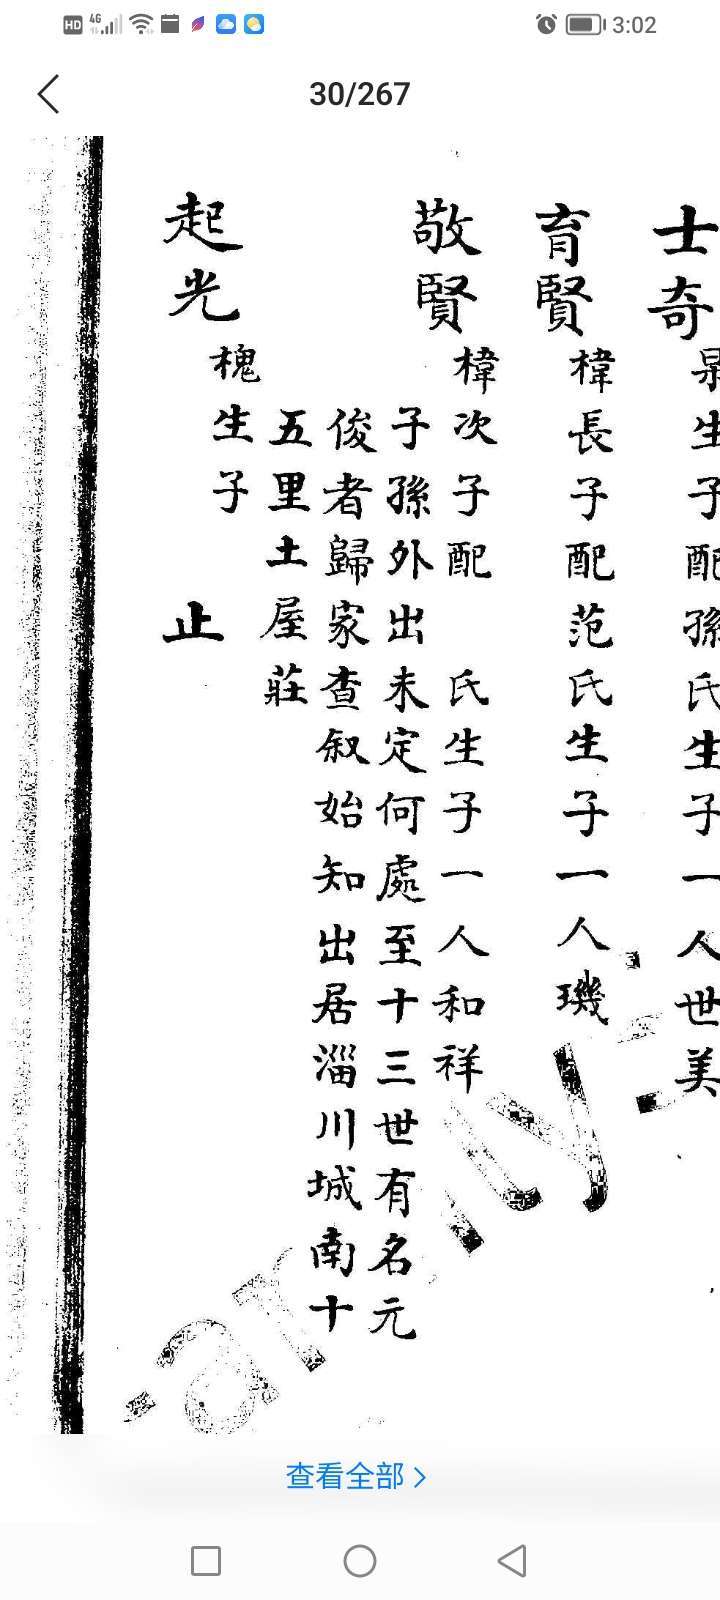 HD 4G 3:02
30/267
士奇
泉生子配孫氏生子一人世美
育賢
樟長子配范氏生子一人璣
敬賢
樟次子配 氏生子一人和祥
子孫外出未定何處至十三世有名元
俊者歸家查叙始知出居淄川城南十
五里土屋莊
起光
槐生子 止
查看全部